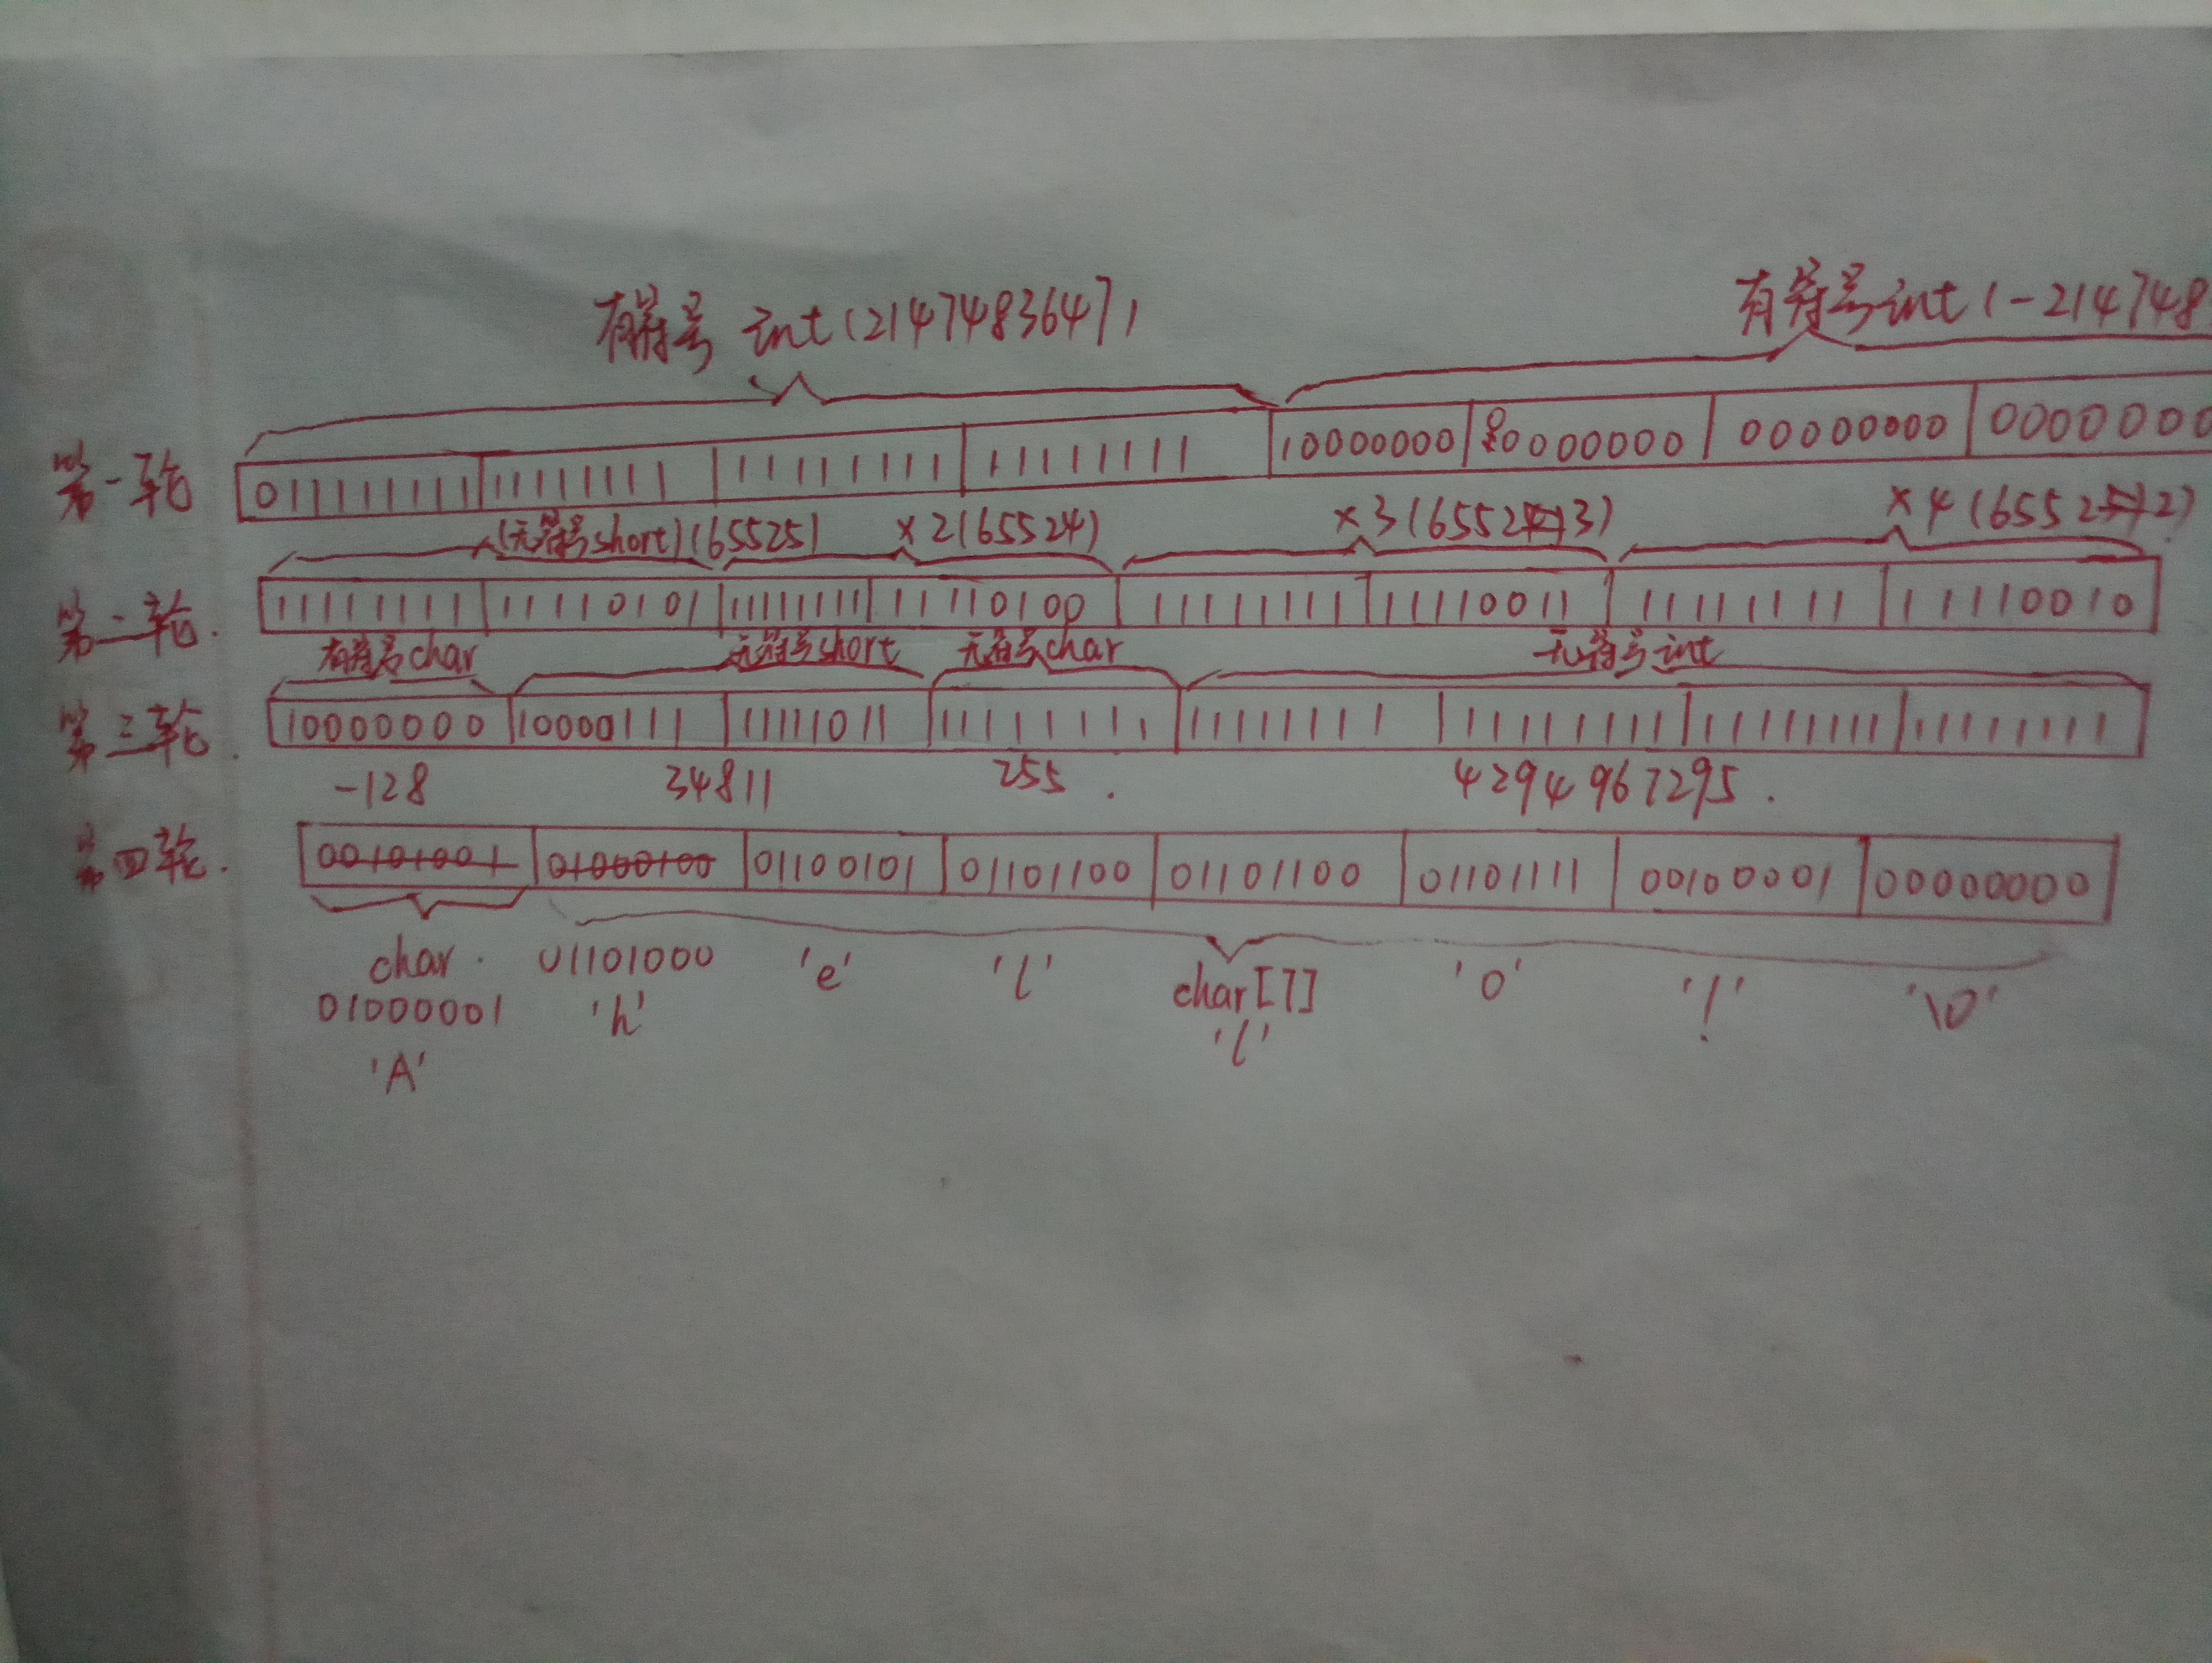 有符号 int (2147483647)
有符号 int (-214748
第一轮 011111111 11111111 111111111 11111111 10000000 00000000 00000000 0000000
(无符号short)(65525) ×2(65524) ×3(65523) ×4(65522)
第二轮. 11111111 11110101 11111111 11110100 11111111 11110011 11111111 11110010
有符号char 无符号short 无符号char 无符号int
第三轮. 10000000 10000111 11111011 11111111 11111111 11111111 11111111 11111111
-128 34811 255. 4294967295.
第四轮. 00101001 01000100 01100101 01101100 01101100 01101111 00100001 00000000
char. 01101000 'e' 'l' char[7] 'o' '!' '\0'
01000001 'h' 'l'
'A'